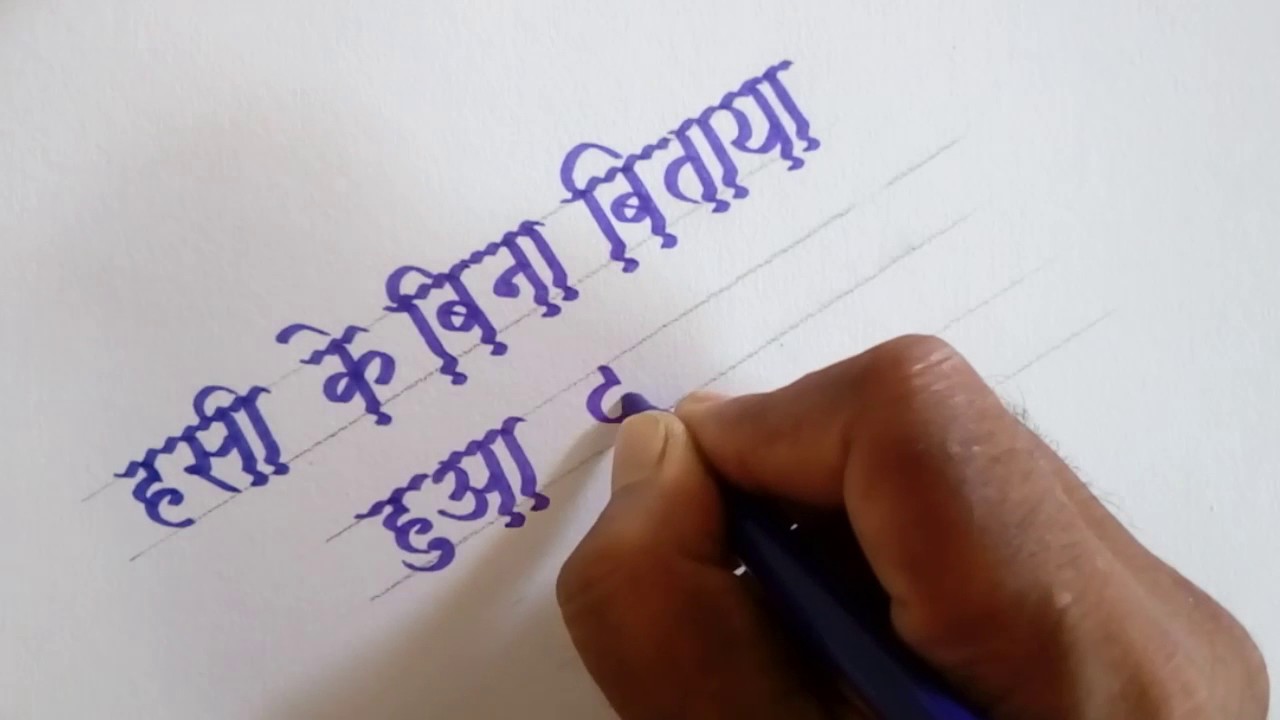 हसी के बिना बिताया
हुआ